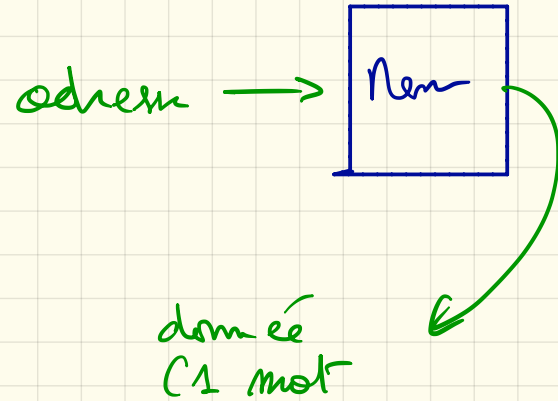 adresse
Mem
donnée
(1 mot